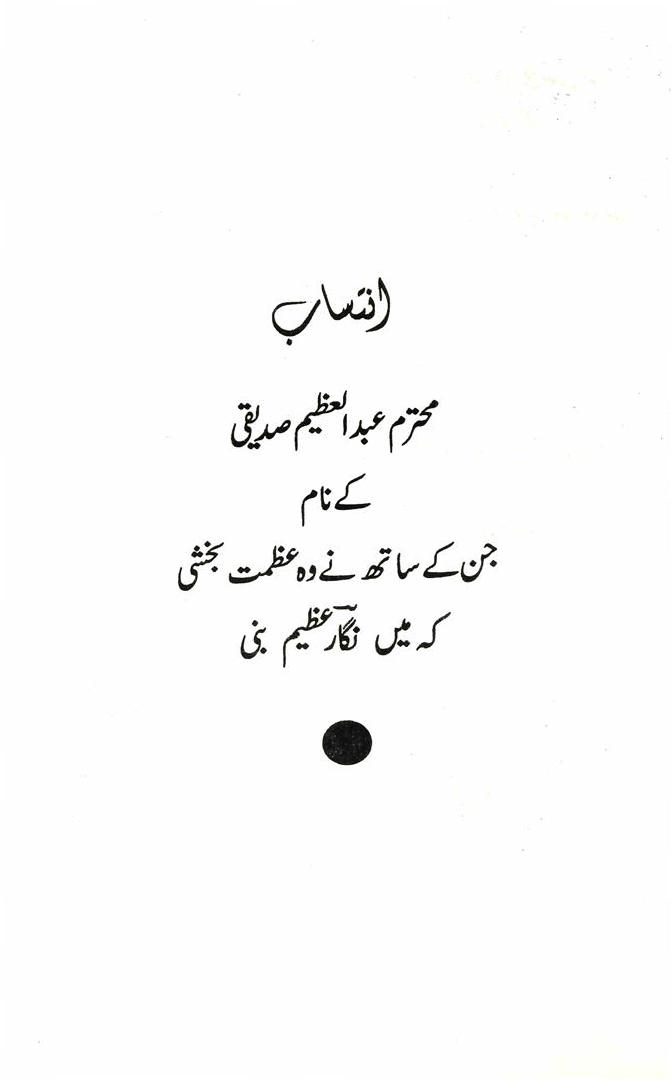 انتساب
محترم عبدالعظیم صدیقی
کے نام
جن کے ساتھ نے وہ عظمت بخشی
کہ میں نگار عظیم بنی